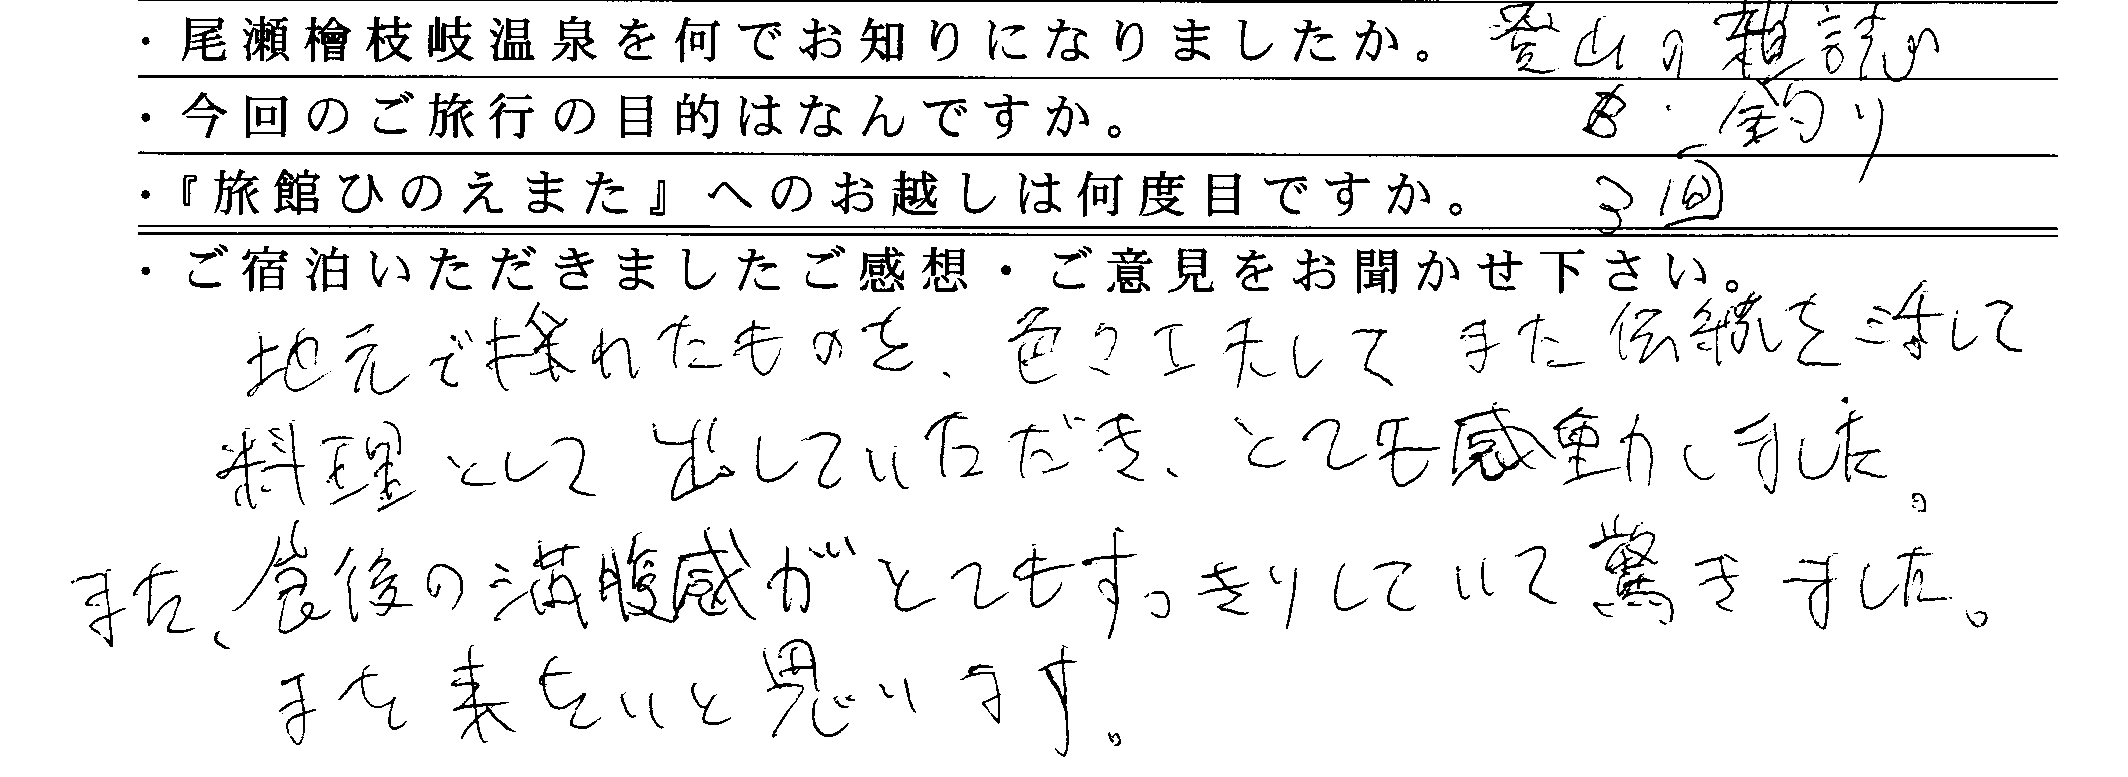 ・尾瀬檜枝岐温泉を何でお知りになりましたか。 登山の雑誌
・今回のご旅行の目的はなんですか。 釣り
・『旅館ひのえまた』へのお越しは何度目ですか。 3回
・ご宿泊いただきましたご感想・ご意見をお聞かせ下さい。
地元で採れたものを、色々工夫してまた伝統を活して
料理として出していただき、とても感動しました。
また、食後の満腹感がとてもすっきりしていて驚きました。
また来たいと思います。